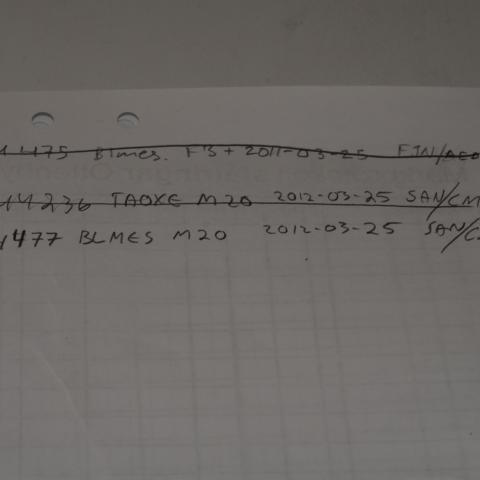 4475 Blmes. F3+ 2011-03-25 FJN/AEO
44236 TAOXE M20 2012-03-25 SAN/CM
4477 BLMES M20 2012-03-25 SAN/C